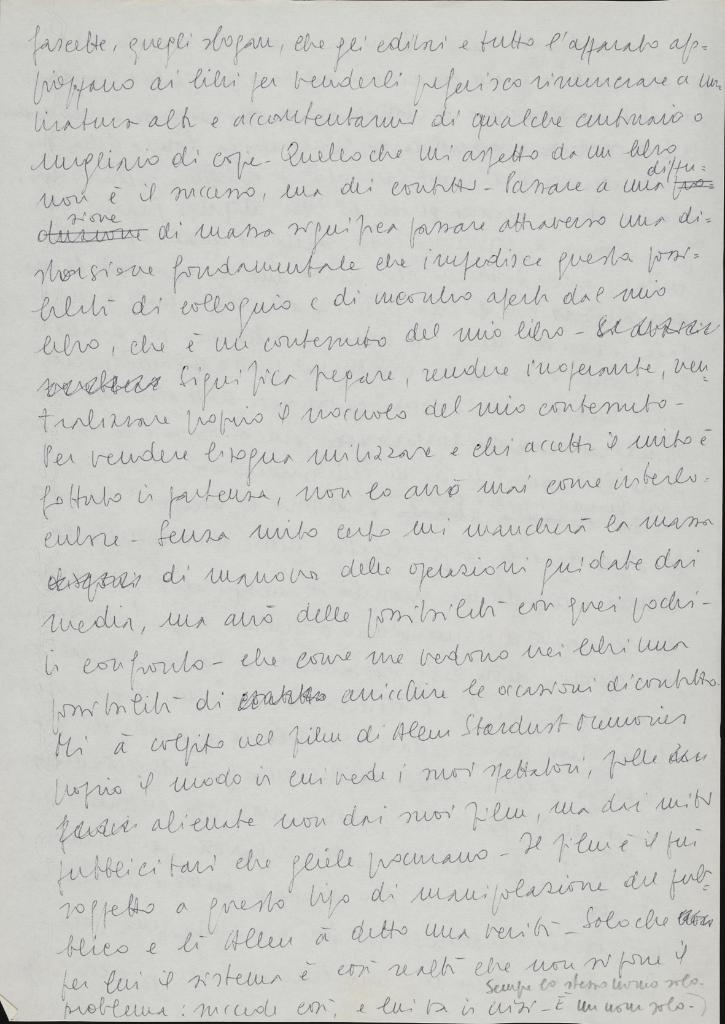 fascette, quegli slogan, che gli editori e tutto l'apparato ap=
pioppano ai libri per venderli preferisco rinunciare a una
tiratura alta e accontentarmi di qualche centinaio o
migliaio di copie - Quello che mi aspetto da un libro
non è il successo, ma dei contatti - Passare a una diffu-
sione di massa significa passare attraverso una di=
storsione fondamentale che impedisce questa possi=
bilità di colloquio e di incontro aperta dal mio
libro, che è un contenuto del mio libro -
Significa piegare, rendere inoperante, neu=
tralizzare proprio il nocciolo del mio contenuto -
Per vendere bisogna mitizzare e chi accetta il mito è
fottuto in partenza, non lo avrò mai come interlo-
cutore - Senza mito certo mi mancherà la massa
di manovra delle operazioni guidate dai
media, ma avrò delle possibilità con quei pochi -
in confronto - che come me vedono nei libri una
possibilità di arricchire le occasioni di contatto.
Mi à colpito nel film di Allen Stardust Memories
proprio il modo in cui vede i suoi spettatori, folle
alienate non dai suoi film, ma dai miti
pubblicitari che gliele procurano - Il film è il più
soggetto a questo tipo di manipolazione del pub=
blico e lì Allen à detto una verità - Solo che
per lui il sistema è così realtà che non si pone il
Sempre lo stesso uomo solo.
problema: succede così, e lui va in crisi - È un uomo solo -